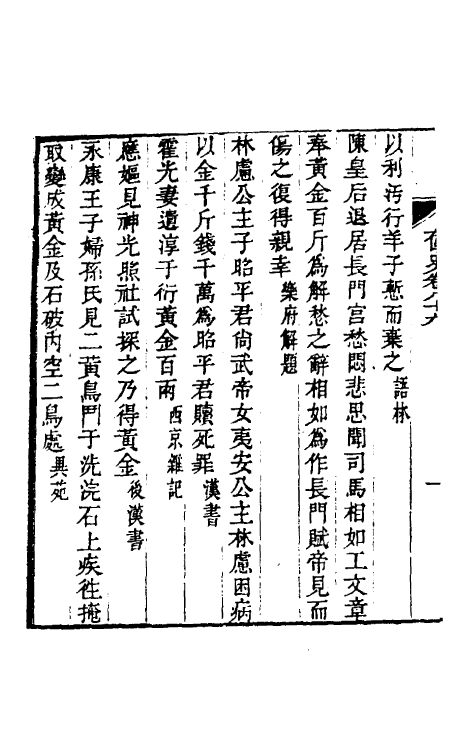 以利汚行羊子慙而棄之語林
陳皇后退居長門宮愁悶悲思聞司馬相如工文章
奉黃金百斤爲解愁之辭相如爲作長門賦帝見而
傷之復得親幸樂府解題
林慮公主子昭平君尙武帝女夷安公主林慮困病
以金千斤錢千萬爲昭平君贖死罪漢書
霍光妻遺淳于衍黃金百兩西京雜記
應嫗見神光照社試探之乃得黃金後漢書
永康王子婦孫氏見二黃鳥鬥于洗浣石上疾徃掩
取變成黃金及石破內空二鳥處異苑
卷八十六
一